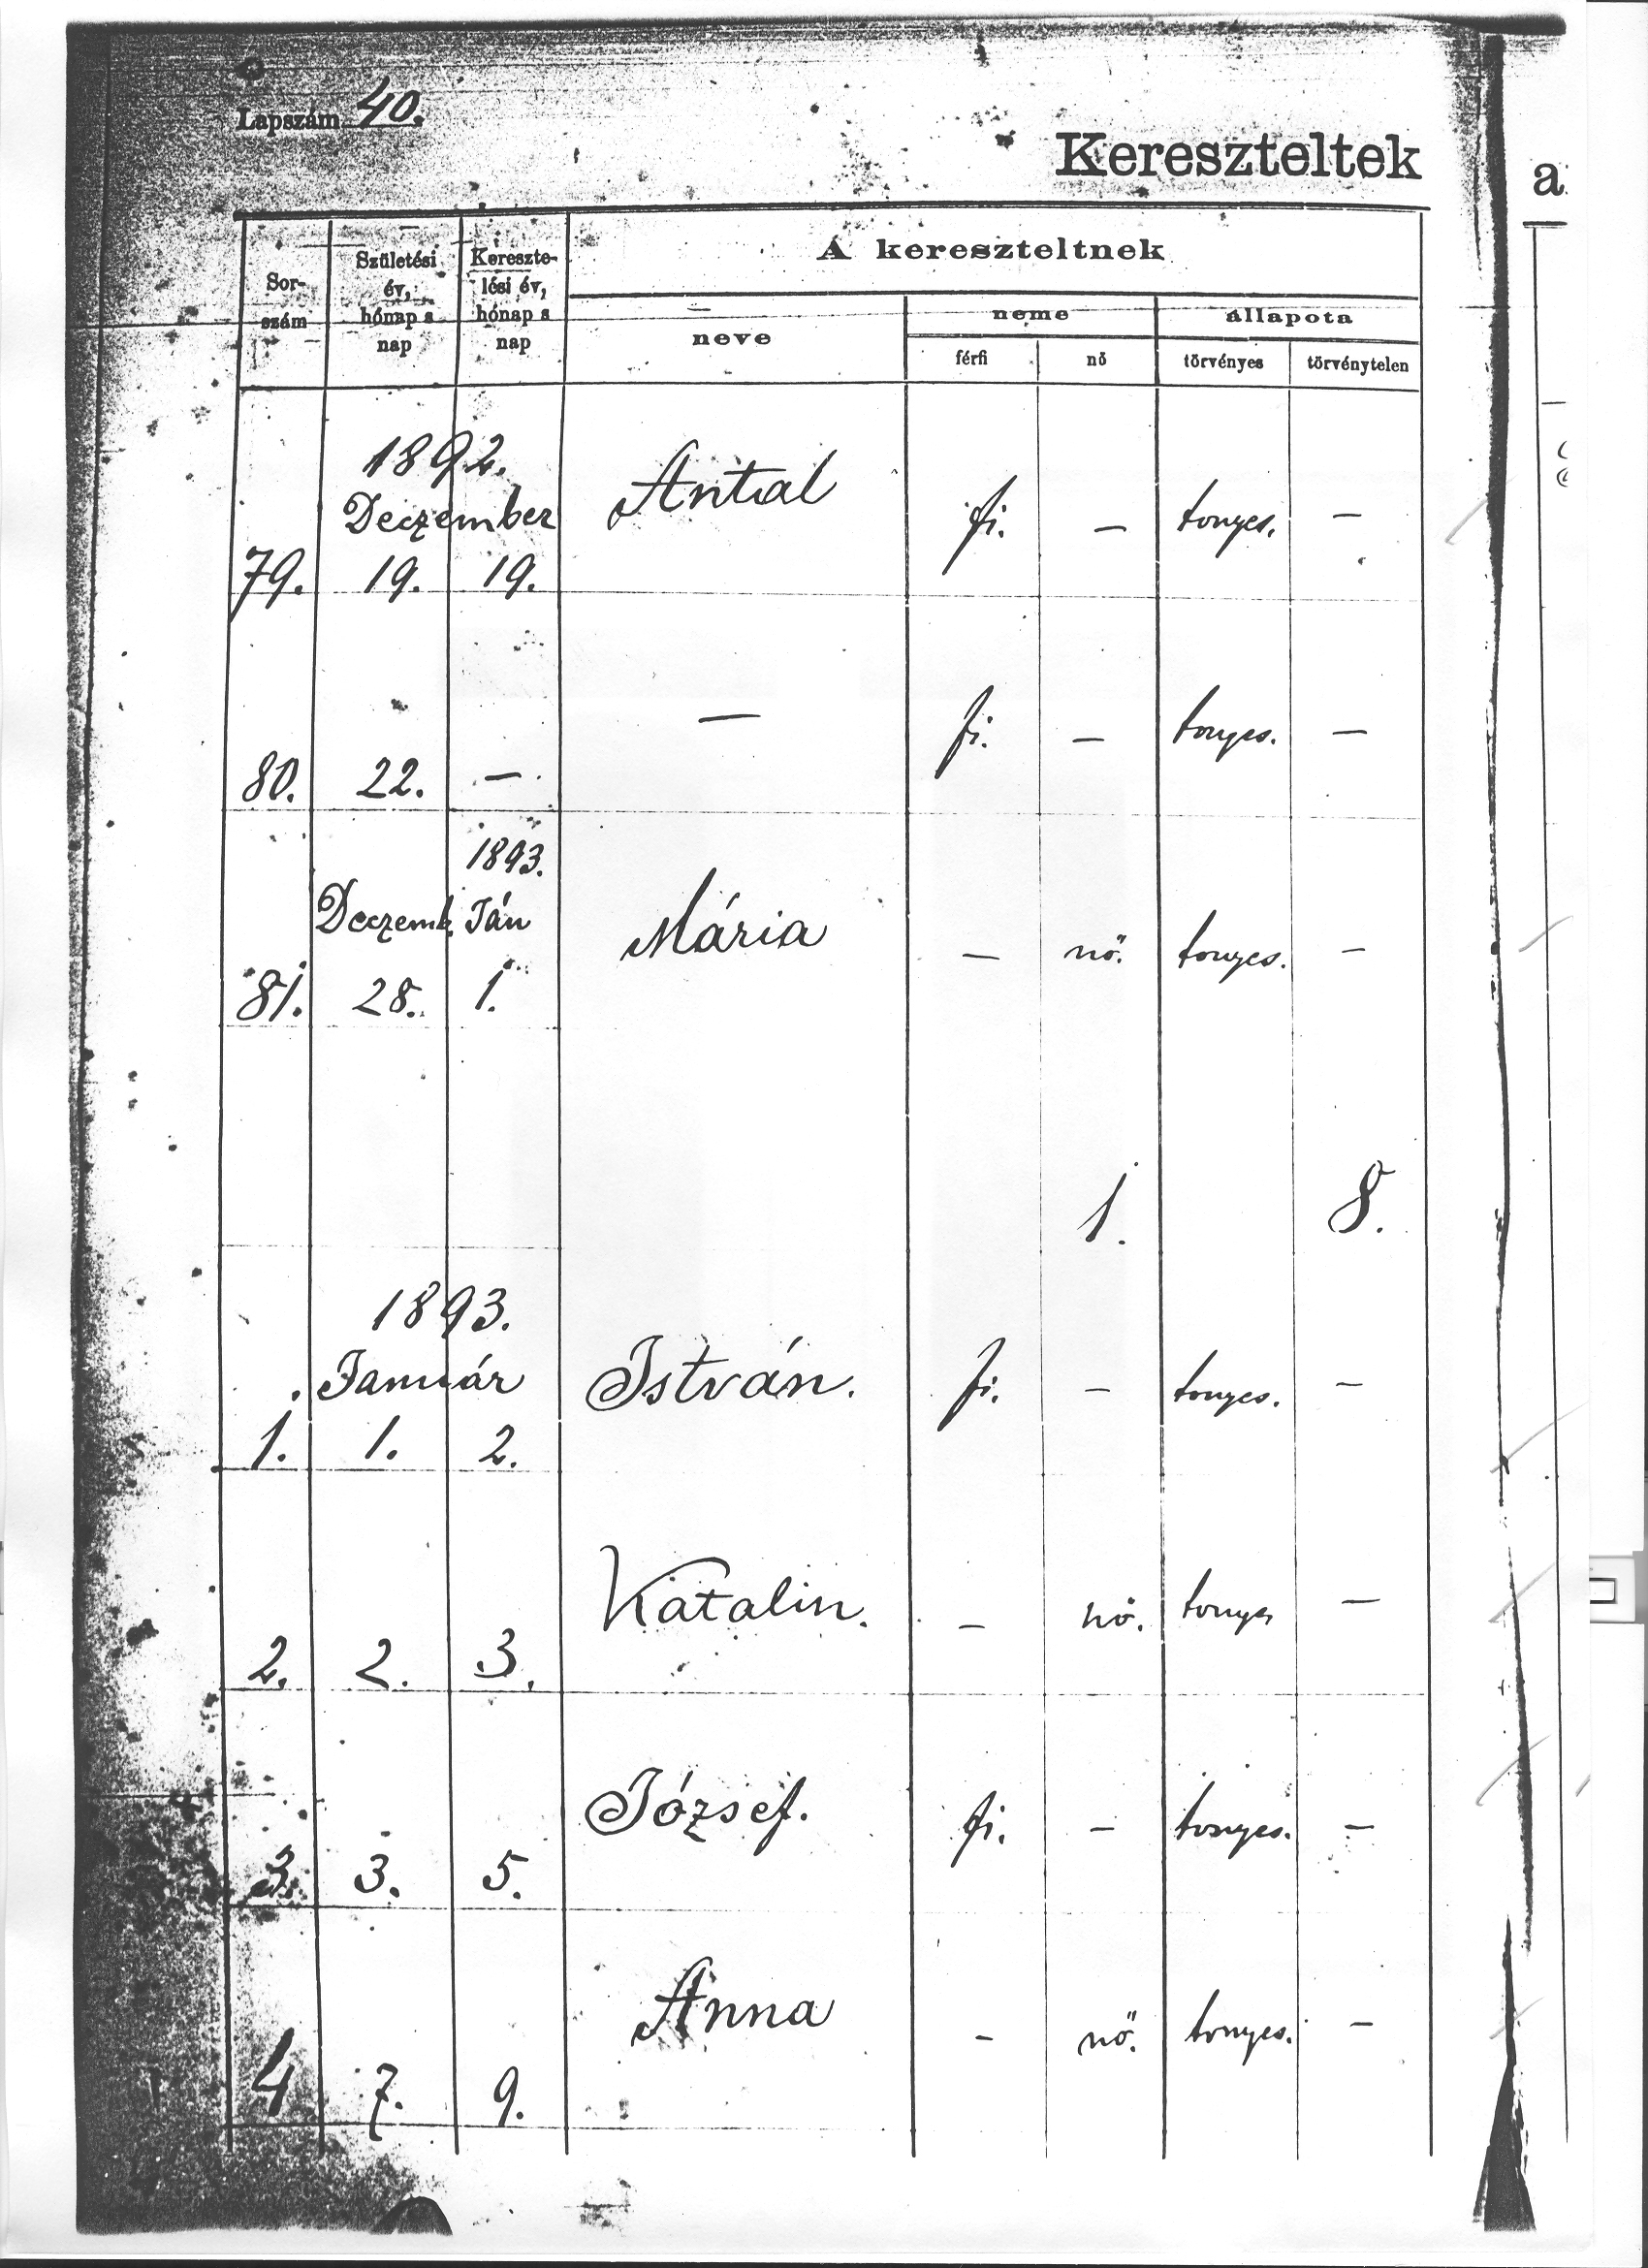 Lapszám 40.
Kereszteltek
a
Sor-
szám
Születési
év,
hónap s
nap
Keresztе-
lési év,
hónap s
nap
A kereszteltnek
neve
neme
állapota
férfi
nő
törvényes
törvénytelen
1892.
Deczember
79. 19. 19. Antal fi. — tvnyes. —
80. 22. — — fi. — tvnyes. —
1893.
Deczemb. Ján
81. 28. 1. Mária — nő. tvnyes. —
1. 8.
1893.
Január
1. 1. 2. István. fi. — tvnyes. —
2. 2. 3. Katalin. — nő. tvnyes —
3. 3. 5. József. fi. — tvnyes. —
4 7. 9. Anna — nő. tvnyes. —